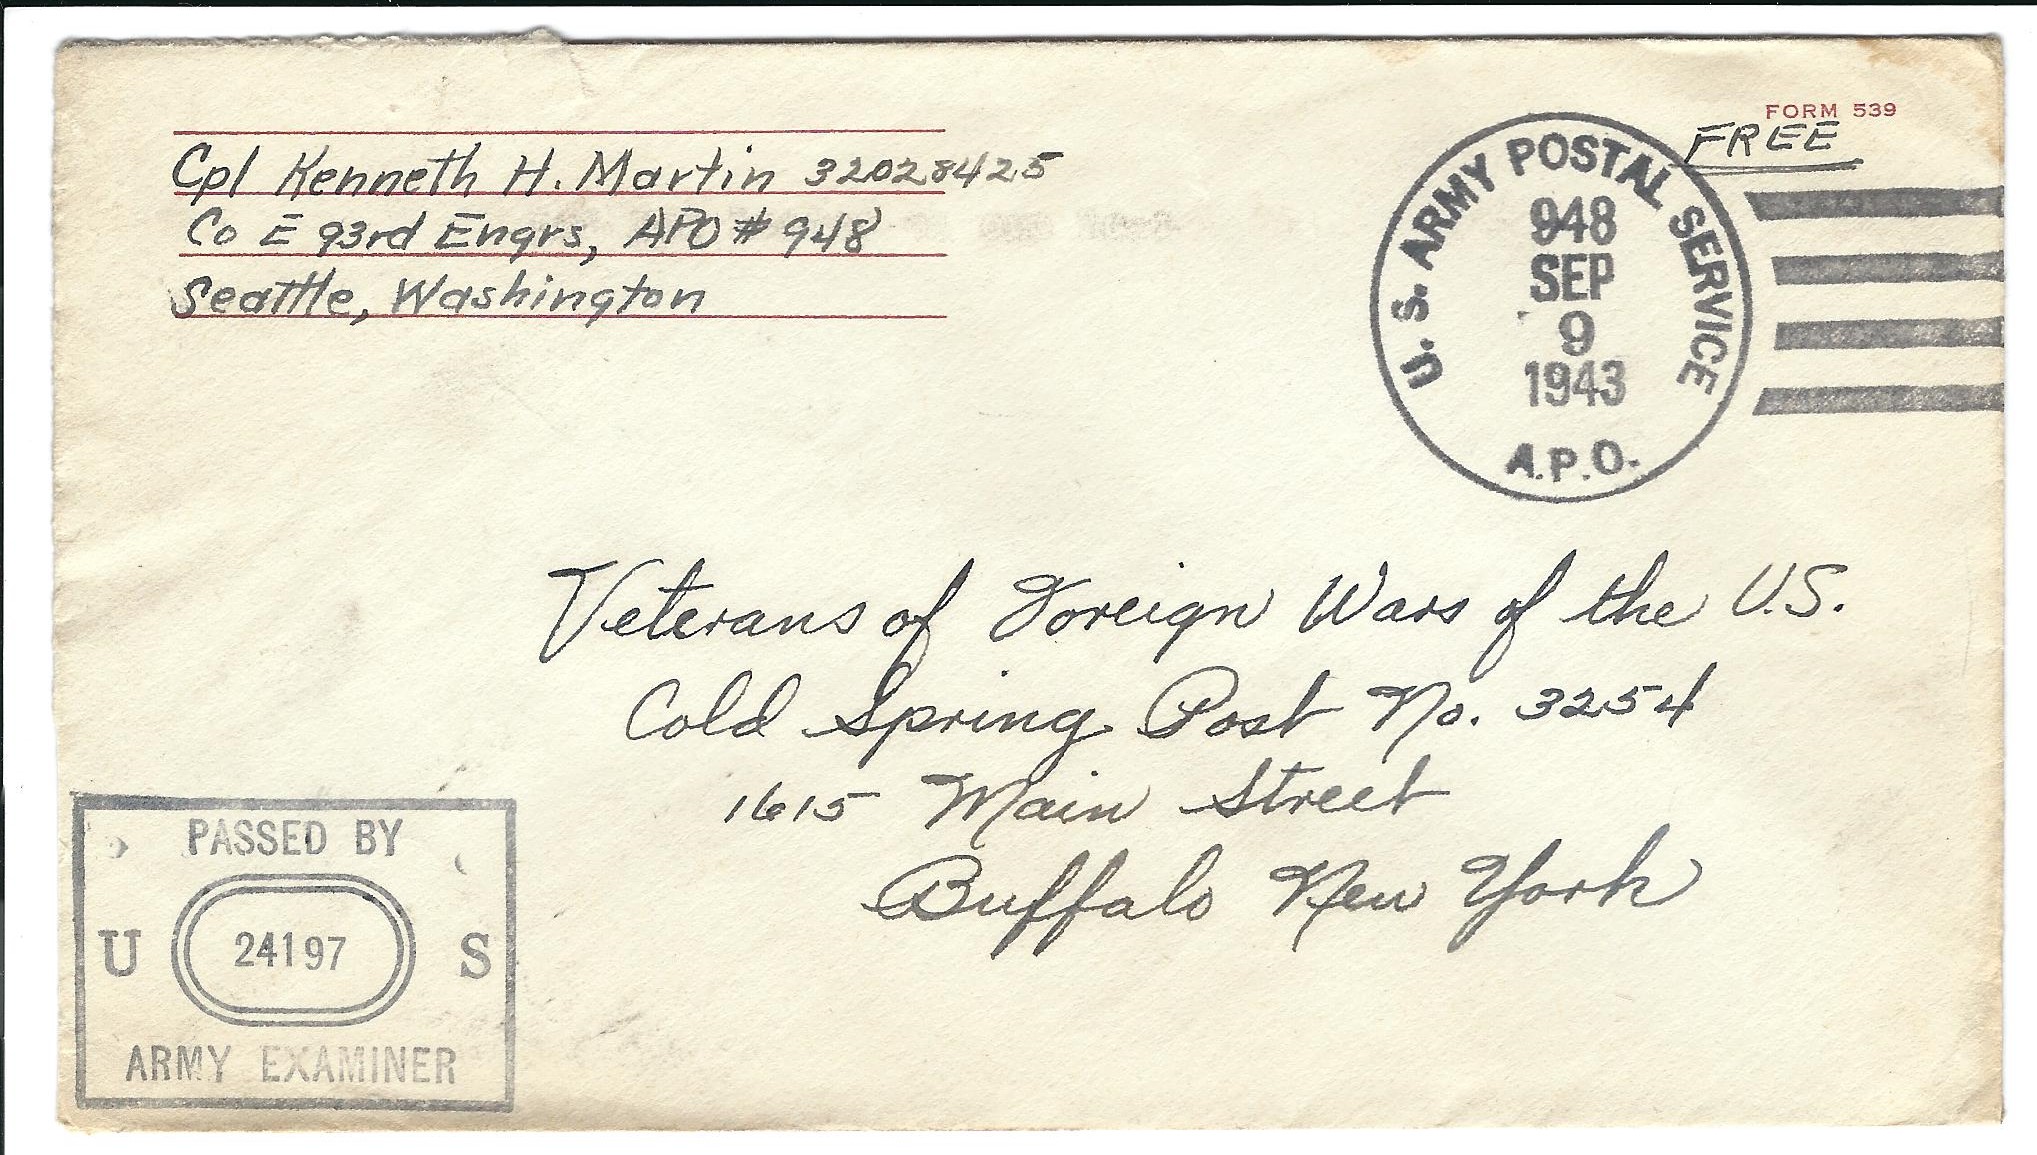 FORM 539
FREE
Cpl Kenneth H. Martin 32028425
Co E 93rd Engrs, APO # 948
Seattle, Washington
U. S. ARMY POSTAL SERVICE
948
SEP
9
1943
A.P.O.
Veterans of Foreign Wars of the U.S.
Cold Spring Post No. 3254
1615 Main Street
Buffalo New York
PASSED BY
U 24197 S
ARMY EXAMINER